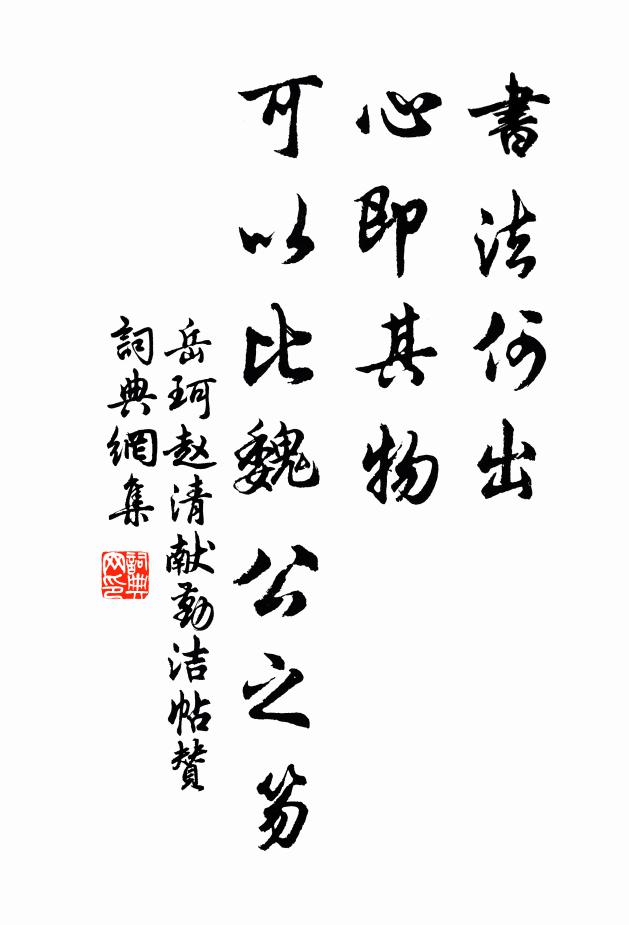 書法何出
心即其物
可以比魏公之笏
岳珂赵清献勤洁帖赞
詞典網集
詞典网印